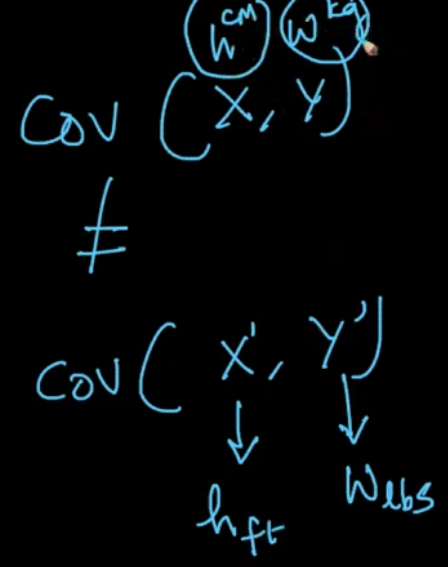 h cm w kg
Cov (X, Y)
≠
Cov (X', Y')
h ft W lbs